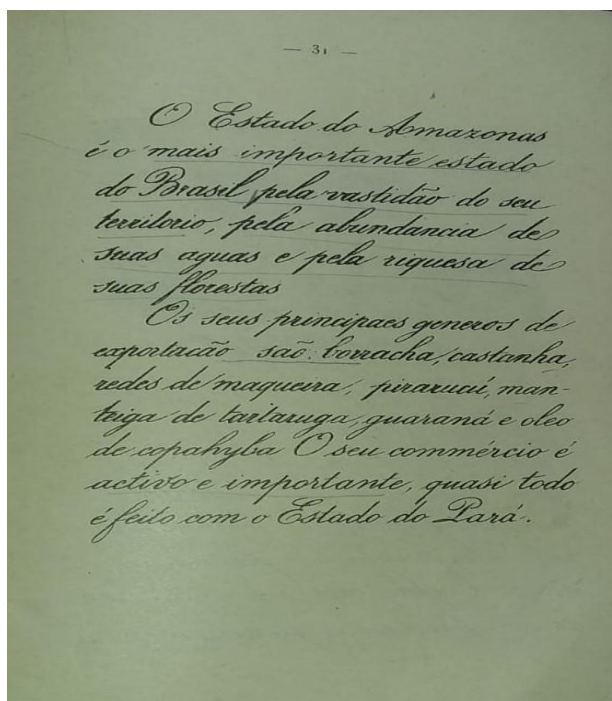 — 31 —
O Estado do Amazonas
é o mais importante estado
do Brasil pela vastidão do seu
territorio, pela abundancia de
suas aguas e pela riquesa de
suas florestas
Os seus principaes generos de
exportacão são: borracha, castanha,
redes de maqueira, pirarucú, man-
teiga de tartaruga, guaraná e oleo
de copahyba O seu commércio é
activo e importante, quasi todo
é feito com o Estado do Pará.